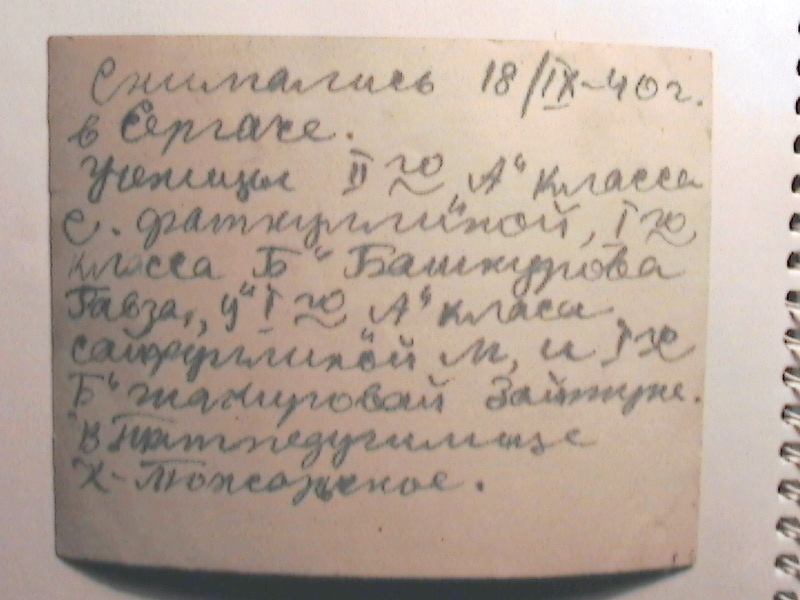 Снимались 18/IX-40 г.
в Сергаче.
Ученицы II го „А" класса
С. Фаткуллиной, I го
класса Б" Башкурова
Гавза,, у" I го А" класа
сайфуллиной М, и I го
Б" шакуровай Зайтуне.
В Татпедучилище